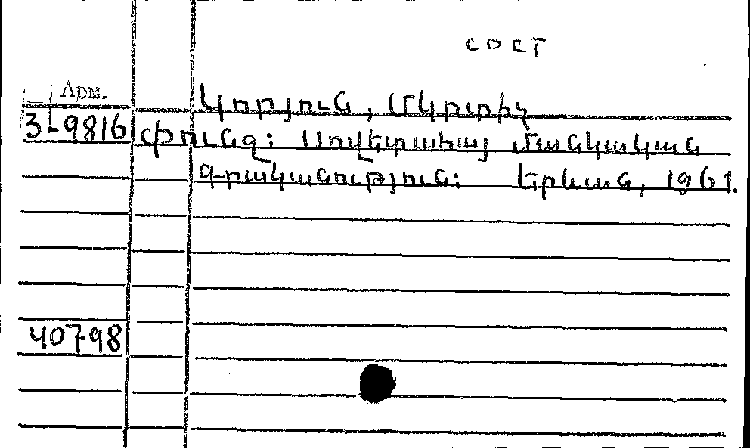 СОСТ
Арм.
Կորյուն, Մկրտիչ
3-9816 Փունջ: Սովետական մանկական
գրականություն: Երևան, 1961.
40798